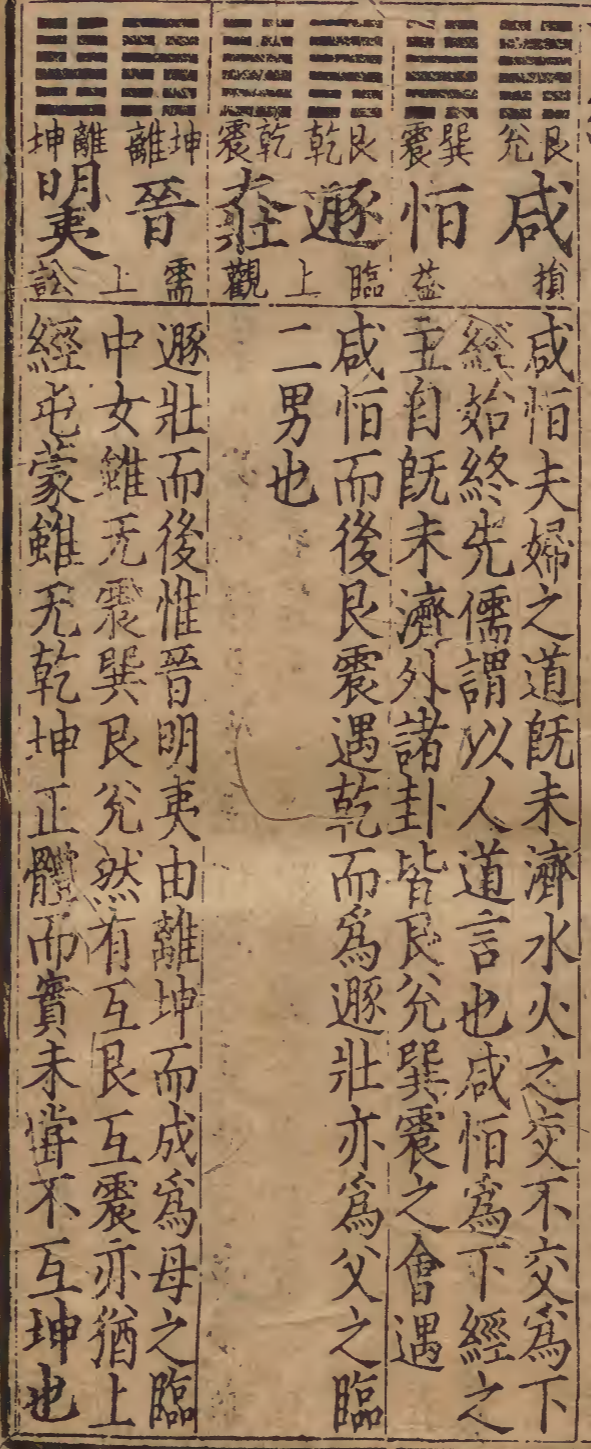 艮兌 巽震 艮乾 乾震 坤離 離坤
咸 恒 遯 大壯 晉 明夷
損 益 臨 上 觀 需 上 訟
咸恒夫婦之道旣未濟水火之交不交爲下
經始終先儒謂以人道言也咸恒爲下經之
主自旣未濟外諸卦皆艮兌巽震之會遇
咸恒而後艮震遇乾而爲遯壯亦爲父之臨
二男也
遯壯而後惟晉明夷由離坤而成爲母之臨
中女雖无震巽艮兌然有互艮互震亦猶上
經屯蒙雖无乾坤正體而實未嘗不互坤也